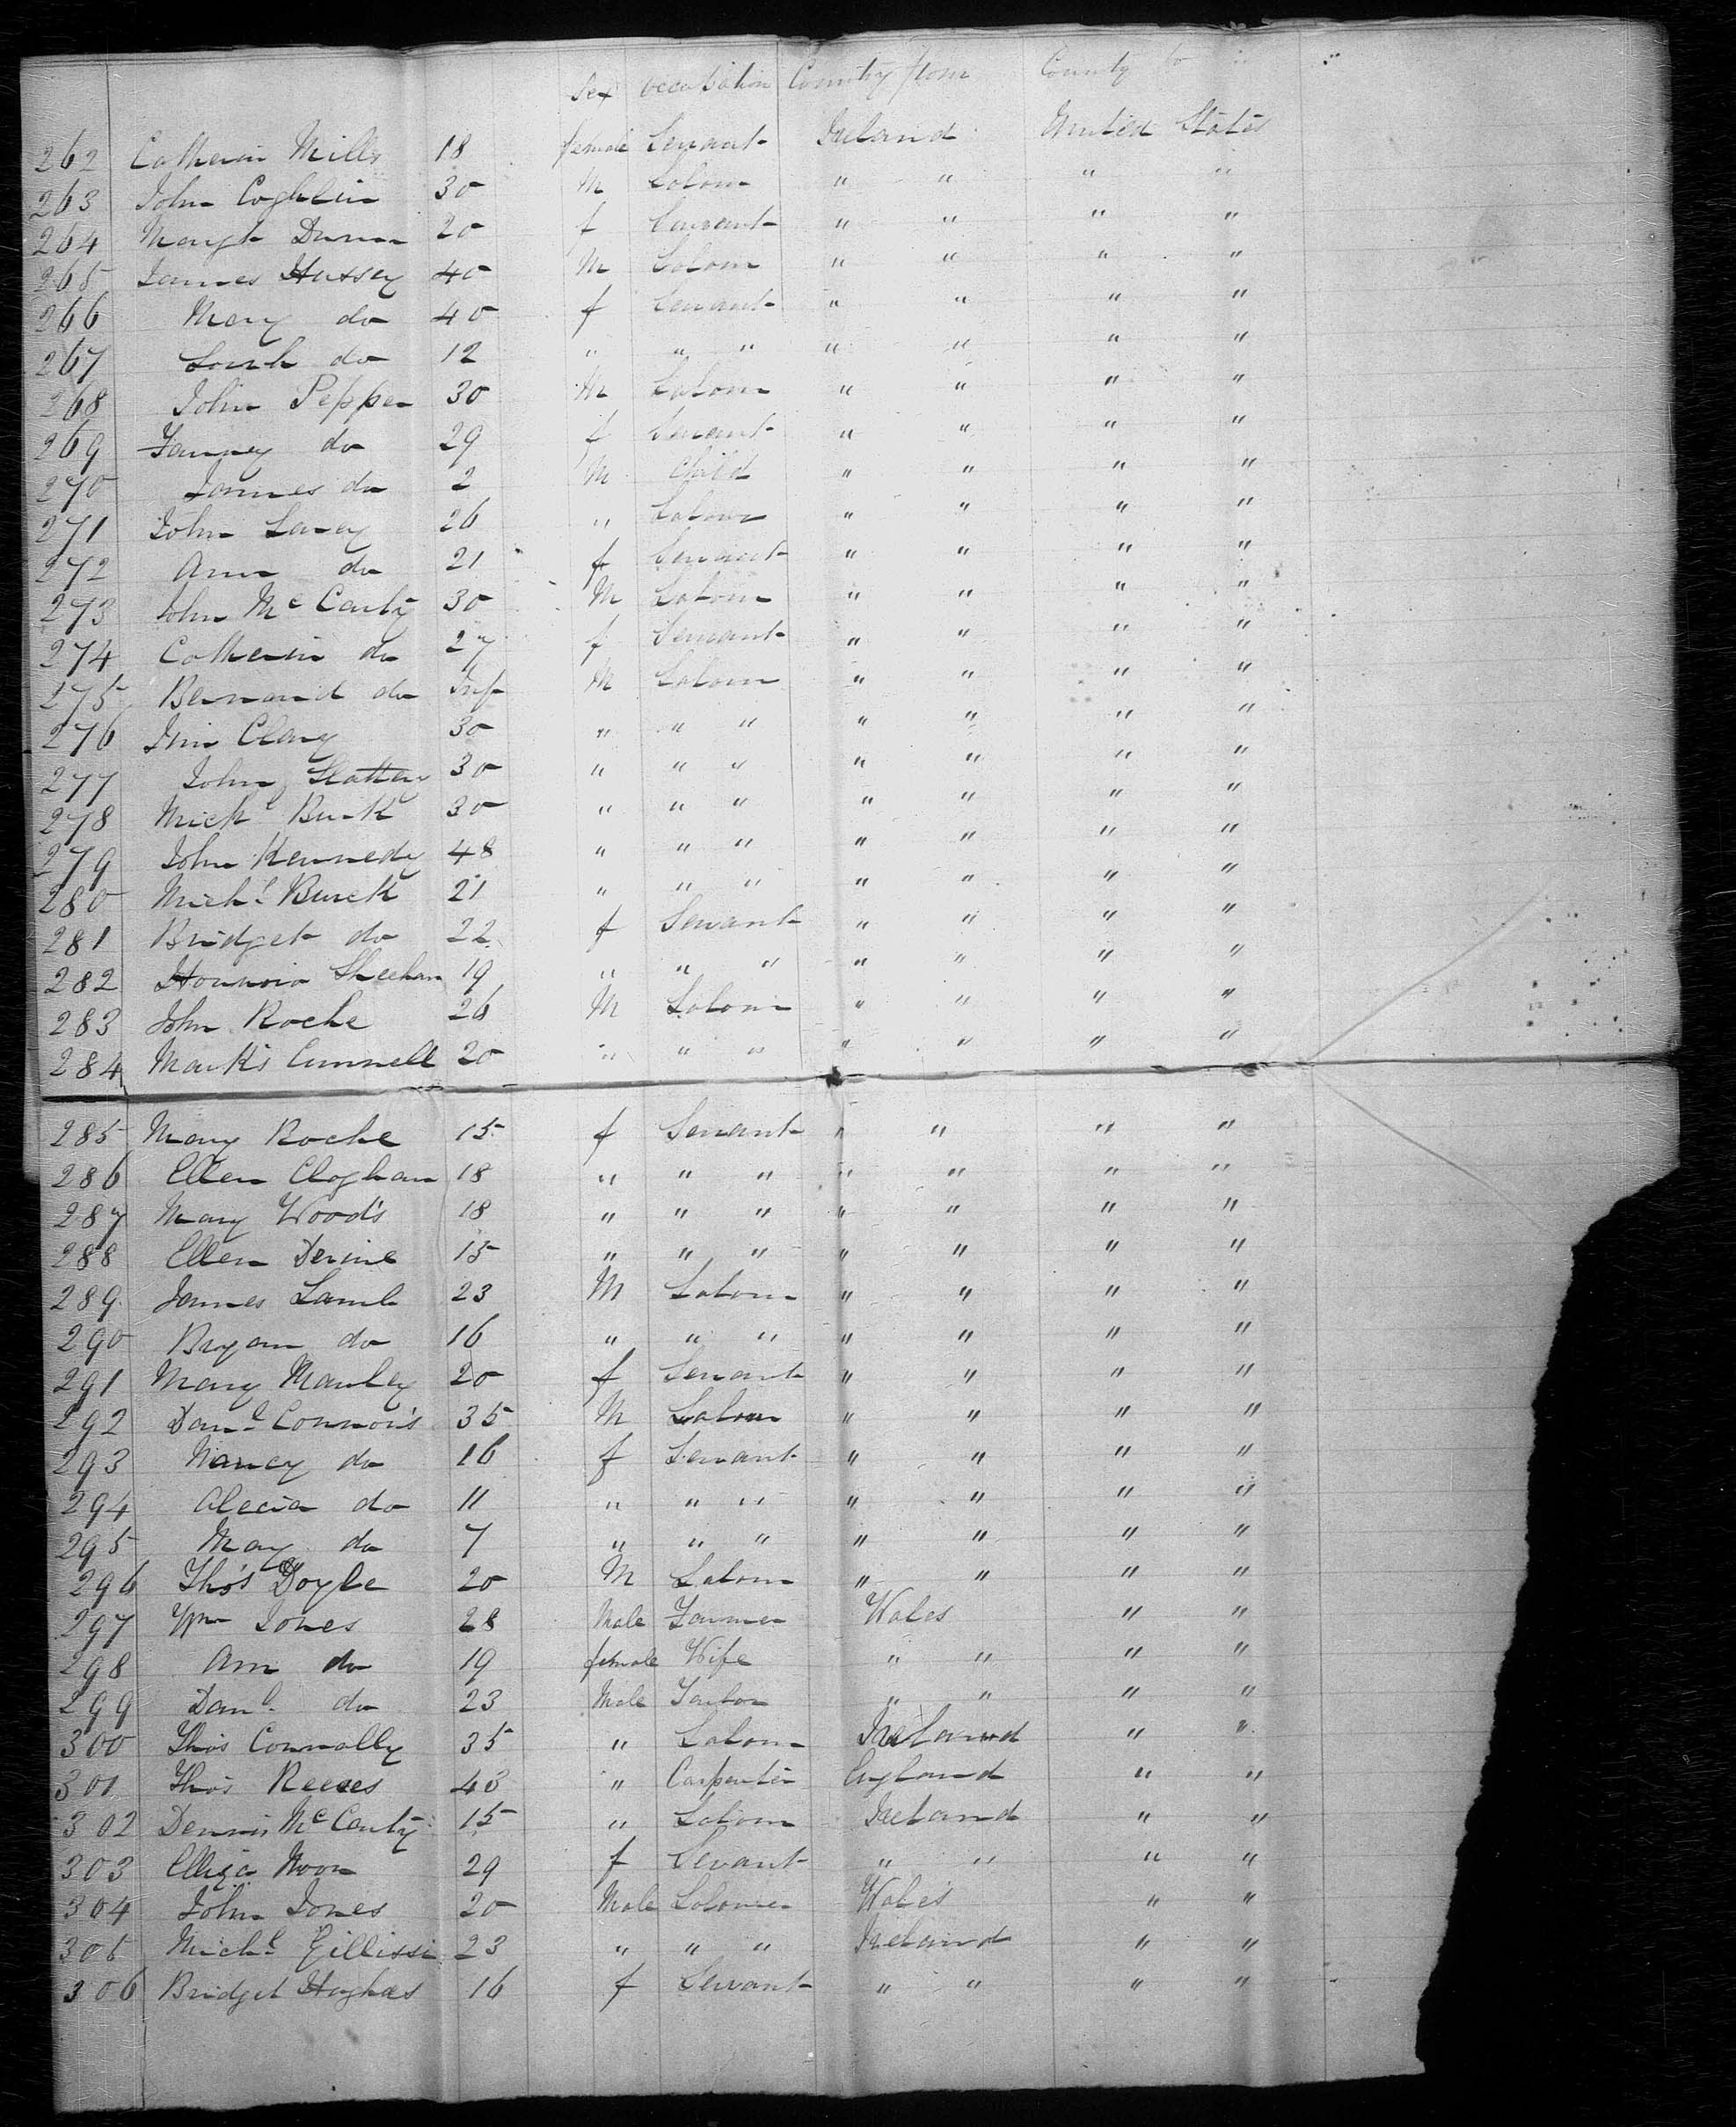 Sex occupation Country from County to
262 Catherin Mills 18 female Servant Ireland United States
263 John Coghlin 30 M Labour " " " "
264 Margt Dunn 20 f Servant " " " "
265 James Hussey 40 M Labour " " " "
266 Mary do 40 f Servant " " " "
267 do 12 " " " " " " "
268 John Pepper 30 M Labour " " " "
269 Fanney do 29 f Servant " " " "
270 James do 2 M Child " " " "
271 John Lacey 26 " Labour " " " "
272 Ann do 21 f Servant " " " "
273 John Mc Carty 30 M Labour " " " "
274 Catherin do 27 f Servant " " " "
275 Bernard do Inf M Labour " " " "
276 Jim Clary 30 " " " " " " "
277 John Slattery 30 " " " " " " "
278 Michl Burk 30 " " " " " " "
279 John Kennedy 48 " " " " " " "
280 Michl Burck 21 " " " " " " "
281 Bridget do 22 f Servant " " " "
282 Honnora Sheehan 19 " " " " " " "
283 John Roche 26 M Labour " " " "
284 Mark's Cunnell 20 " " " " " " "
285 Mary Roche 15 f Servant " " " "
286 Ellen Cloghan 18 " " " " " " "
287 Mary Wood's 18 " " " " " " "
288 Ellen Devine 15 " " " " " " "
289 James Lamb 23 M Labour " " " "
290 Bryan do 16 " " " " " " "
291 Mary Manley 20 f Servant " " " "
292 Danl Connor's 35 M Labour " " " "
293 Nancy do 16 f Servant " " " "
294 Alecia do 11 " " " " " " "
295 May do 7 " " " " " " "
296 Tho's Doyle 20 M Labour " " " "
297 Wm Jones 28 Male Farmer Wales " "
298 Ann do 19 female Wife " " " "
299 Danl do 23 Male Tailor " " " "
300 Tho's Connolly 35 " Labour Ireland " "
301 Tho's Reeves 43 " Carpenter England " "
302 Dennis Mc Carty 15 " Labour Ireland " "
303 Elliza Moon 29 f Servant " " " "
304 John Jones 20 Male Labourer Wales " "
305 Michl Gillissi 23 " " " Ireland " "
306 Bridget Hughes 16 f Servant " " " "